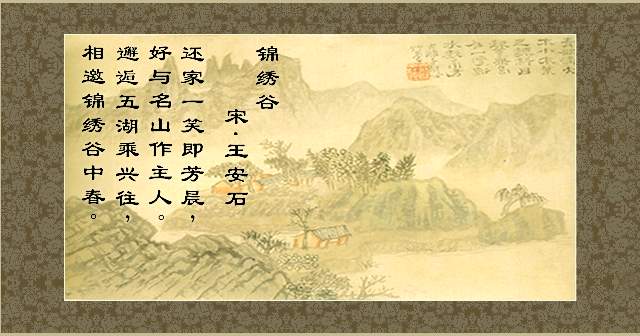 锦绣谷
宋·王安石
还家一笑即芳晨，
好与名山作主人。
邂逅五湖乘兴往，
相邀锦绣谷中春。